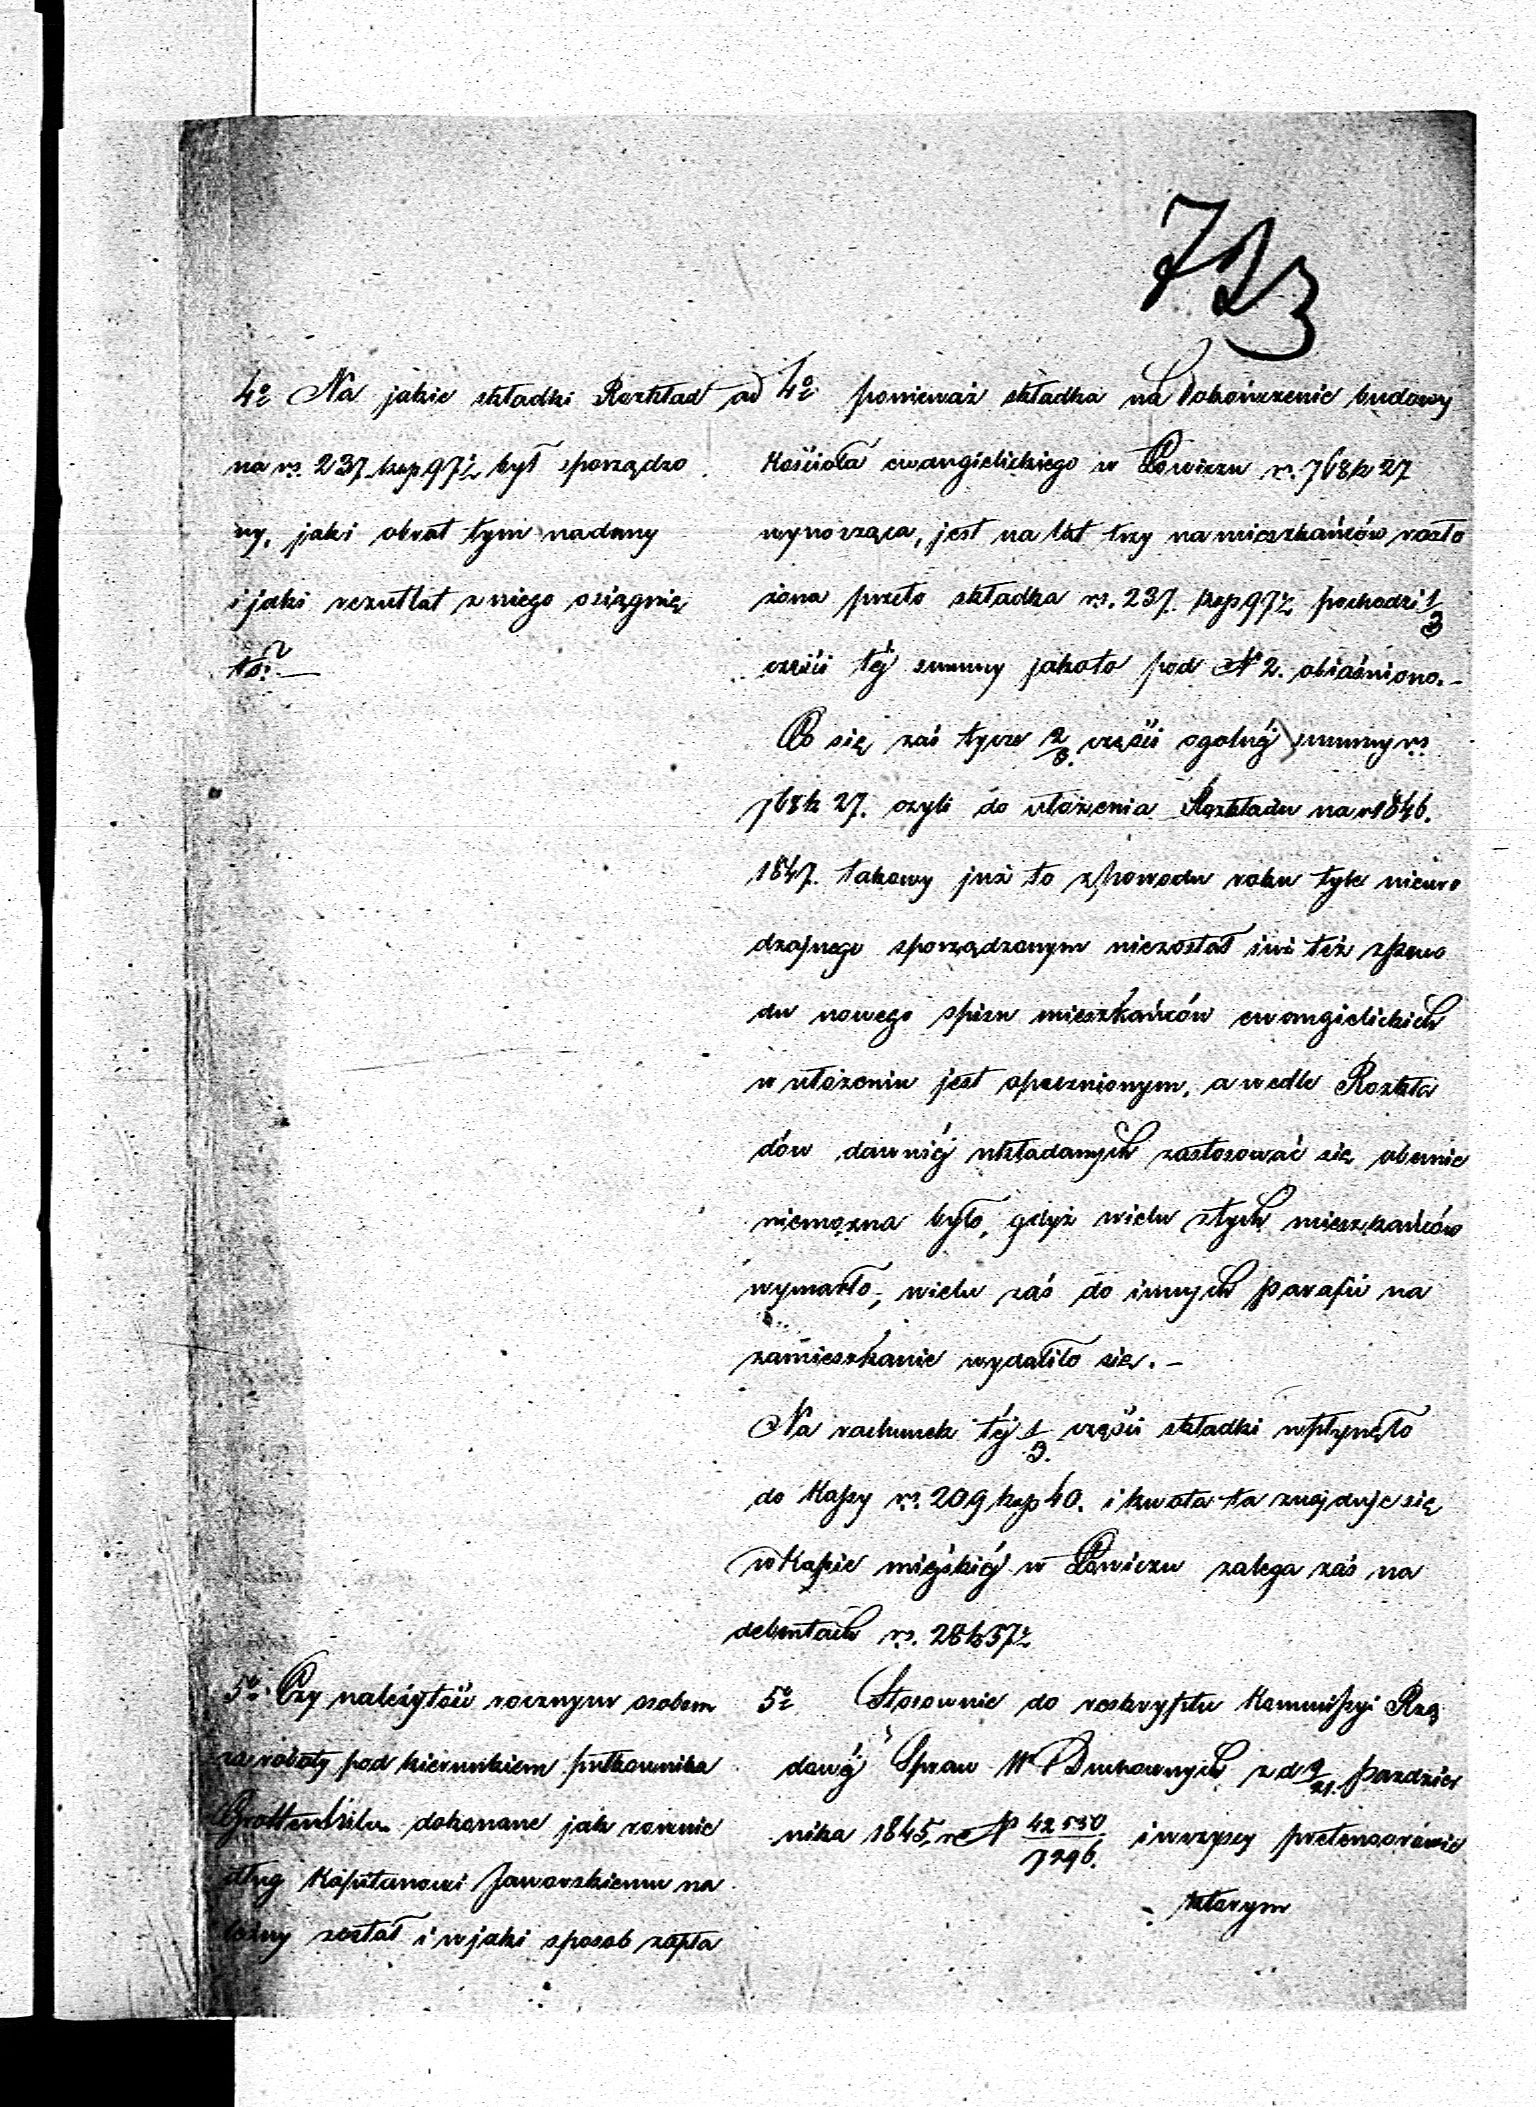 723
4o Na jakie składki Rozkład
na rs. 237 kop 97½ był sporządzo
ny, jaki obrot tym nadany
i jaki rezultat z niego osiągnię
to?—
ad 4o ponieważ składka na dokończenie budowy
Kościoła ewangielickiego w Łowiczu rs. 768 k 27
wynosząca, jest na lat trzy na mieszkańców rozło
żona przeto składka rs. 237 kop 97½ pochodzi 1/3
części téj summy jakoto pod No 2. obiaśniono.—
Co się zaś tycze 2/3 części ogolnéj summy rs
768 k 27. czyli do ułożenia Rozkładu na r 1846.
1847. takowy już to z powodu roku tyle nieuro
dzajnego sporządzonym niezostał iuż też z powo
du nowego spisu mieszkańców ewangielickich
w ułożeniu jest opoznionym, a wedle Rozkła
dów dawniéj układanych zastosować się obecnie
niemożna było, gdyż wielu z tych mieszkańców
wymarło, wielu zaś do innych parafii na
zamieszkanie wydaliło się.—
Na rachunek téj 1/3 części składki wpłynęło
do Kassy rs. 209 kop 40. i kwota ta znajduje się
w Kassie miéjskiéj w Łowiczu zalega zaś na
debentach rs. 28 k 57½
5o Czy należytość rocznym osobom
za roboty pod kierunkiem pułkownika
dokonane jak rownie
dług Kapitanowi Jaworskiemu na
leżny został i w jaki sposob zapła
5o Stosownie do reskryptu Kommissyi Rzą
dowéj Spraw W. i Duchownych z d 9/21. pazdzier
nika 1845 r No 42530/7296. i wszyscy pretensorowie
ktorym